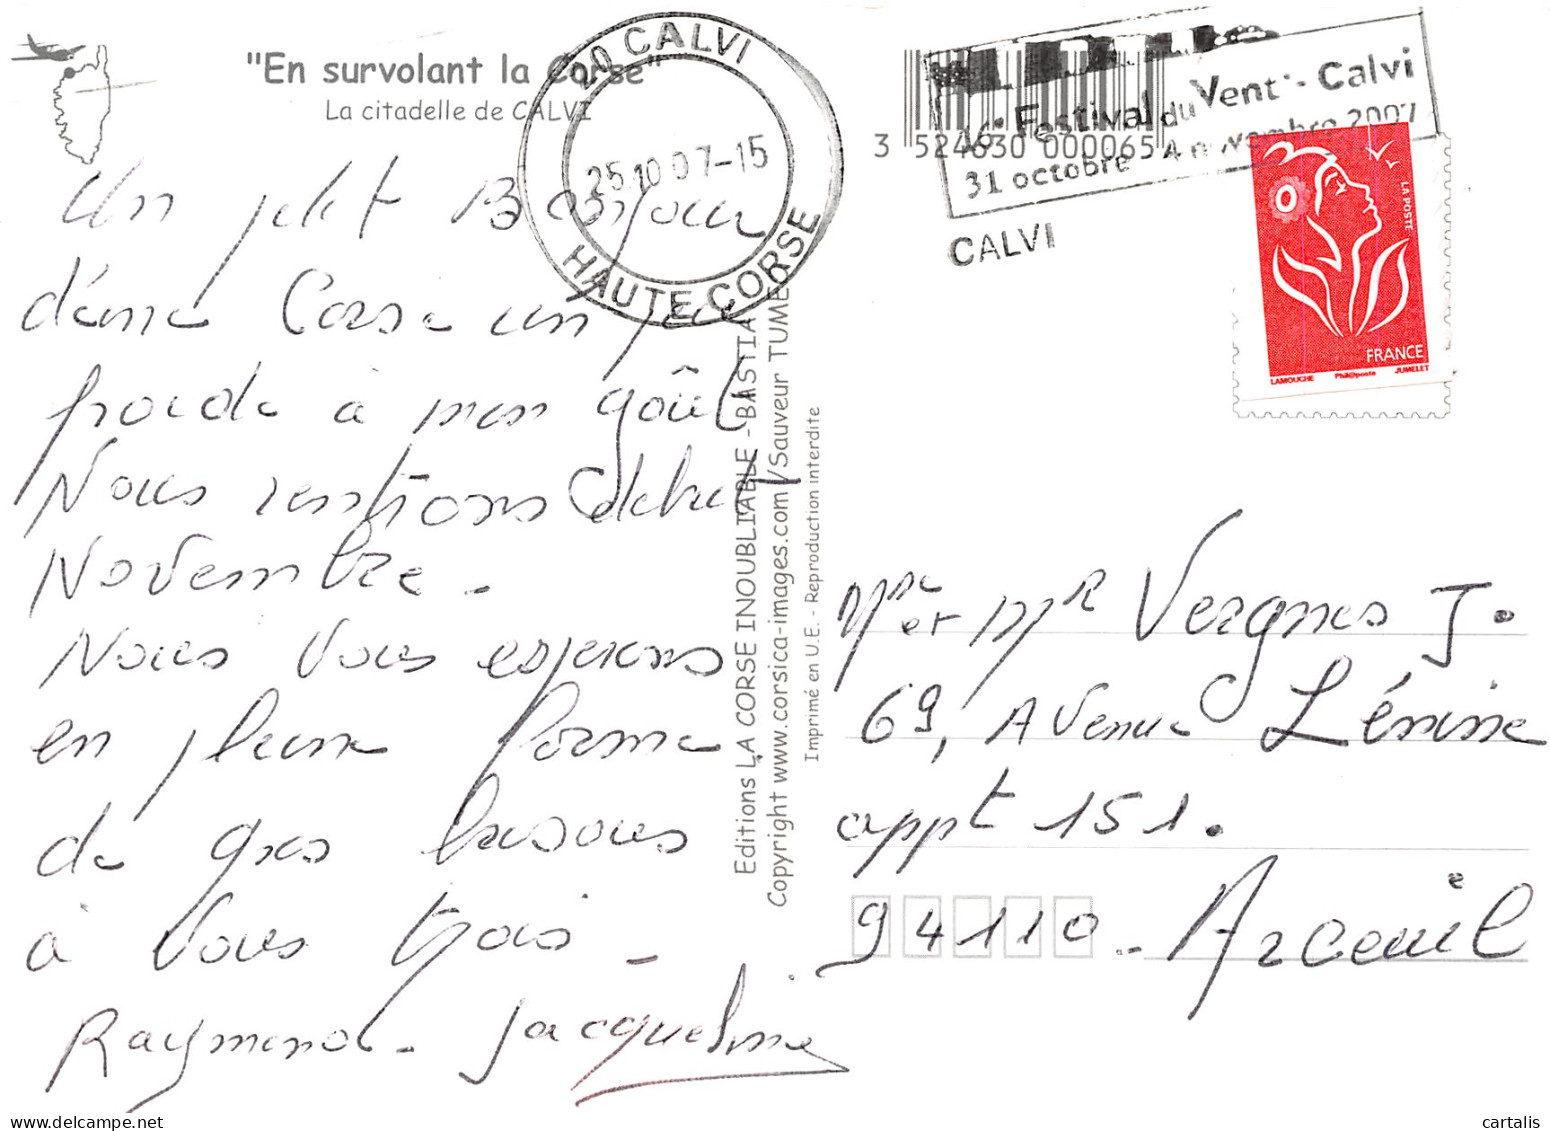 "En survolant la Corse"
La citadelle de CALVI
20 CALVI
25.10.07-15
HAUTE CORSE
Festival du Vent - Calvi
31 octobre 4 novembre 2007
CALVI
3 524630 000065
LA POSTE
FRANCE
LAMOUCHE Phil@poste JUMELET
Un petit Bonjour
d'une Corse un peu
froide à mon goût
Nous rentrons début
Novembre -
Nous vous espérons
en pleine forme
de gros bisous
à vous trois -
Raymond - Jacqueline
Editions LA CORSE INOUBLIABLE - BASTIA
Copyright www.corsica-images.com/Sauveur TUME
Imprimé en U.E. - Reproduction interdite
Mme et Mr Vergnes J.
69, Avenue Lénine
appt 151.
94110 - Arceuil
cartalis